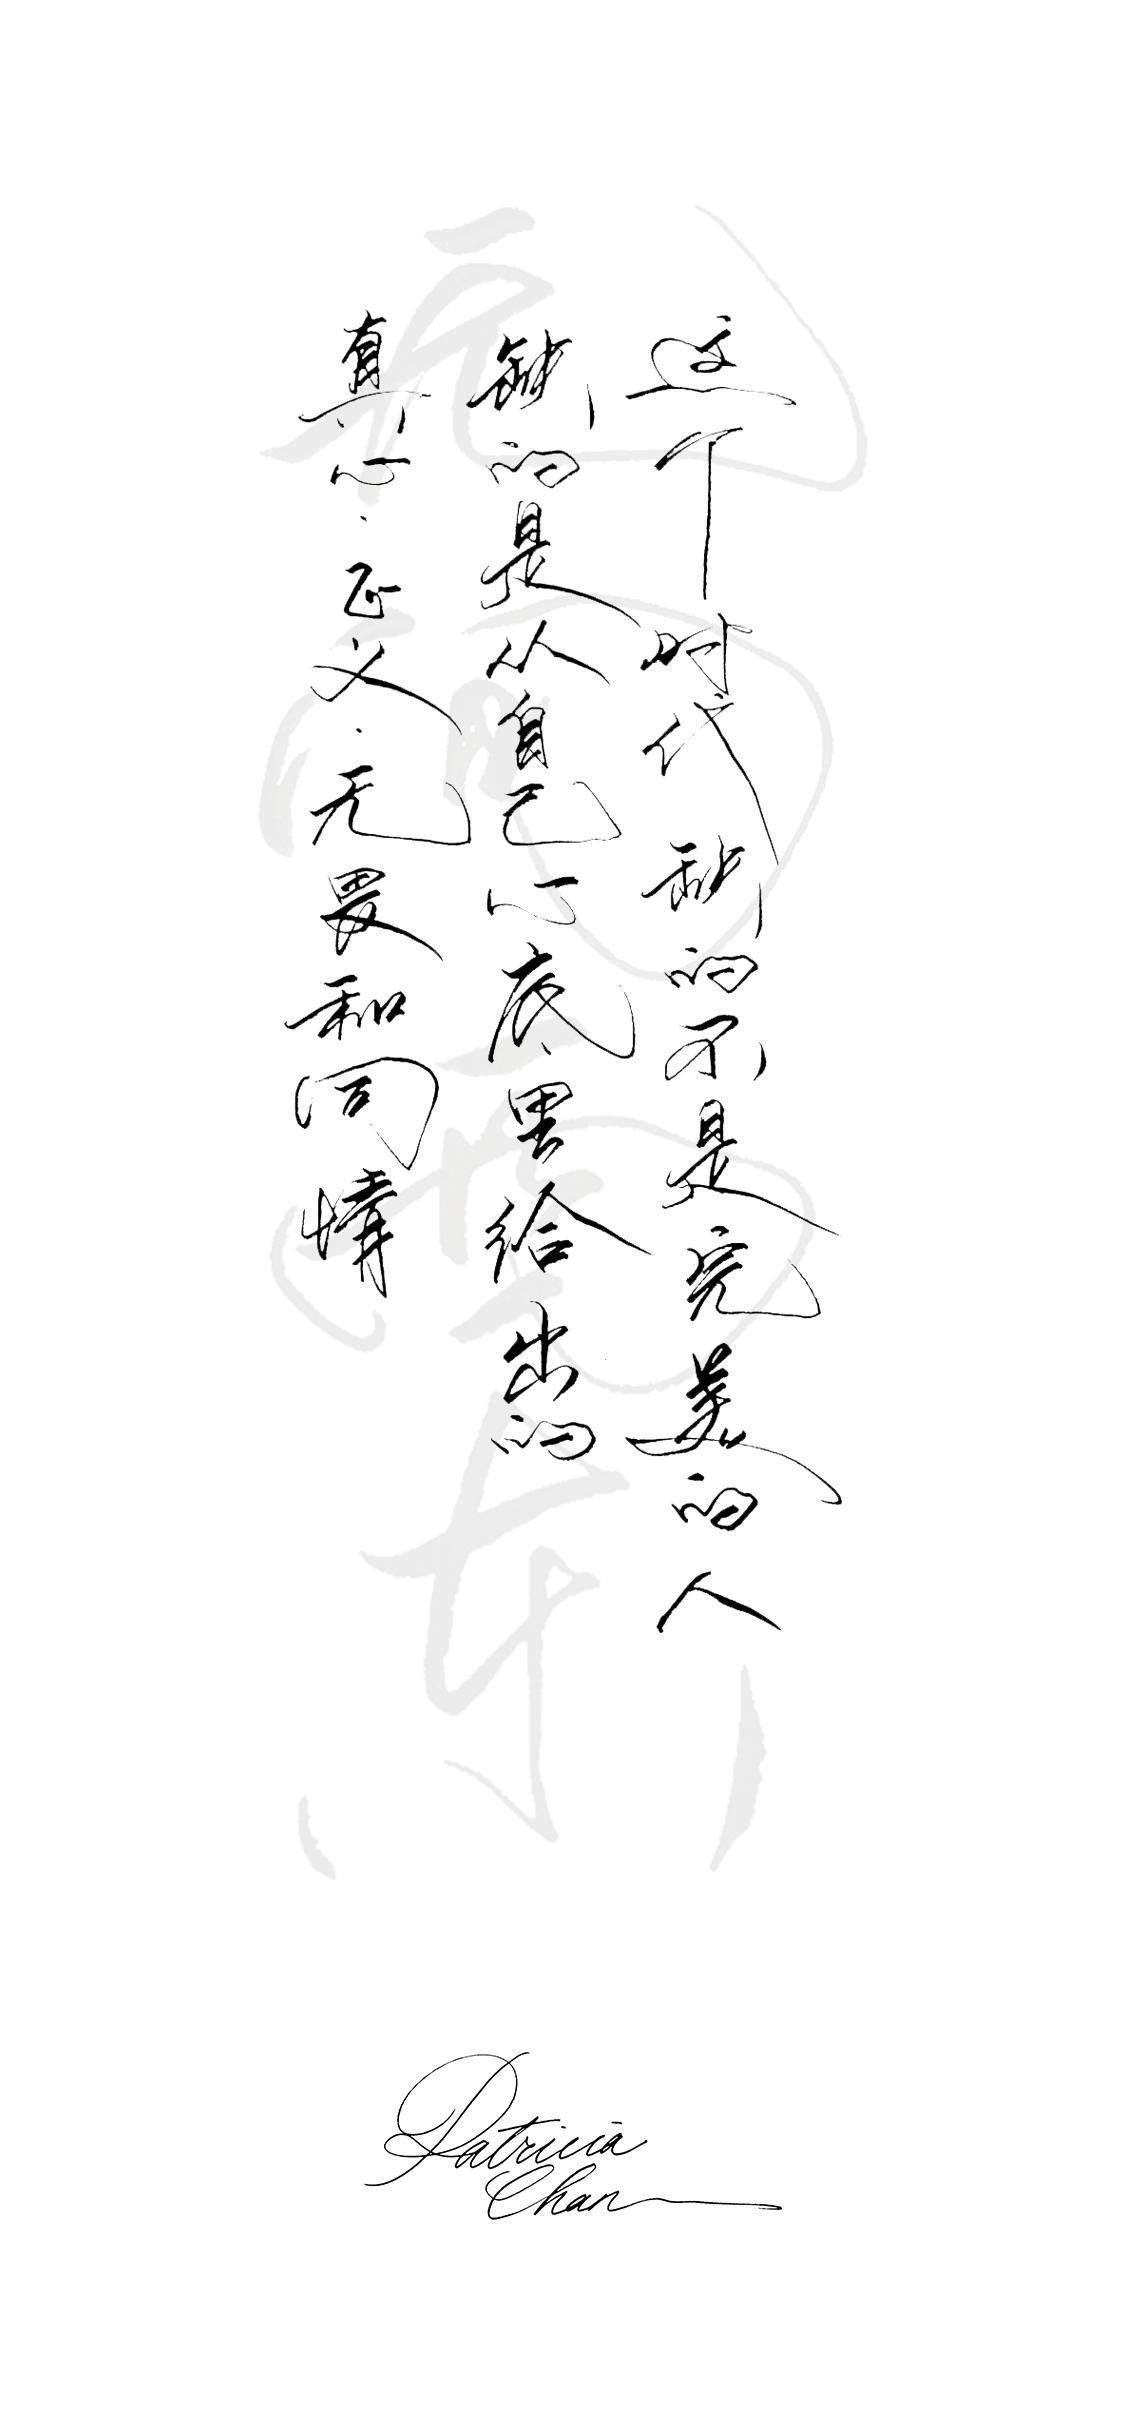 这个时代缺的不是完美的人
缺的是从自己心底里给出的
真心·正义·无畏和同情
无问西东
Patricia
Chan